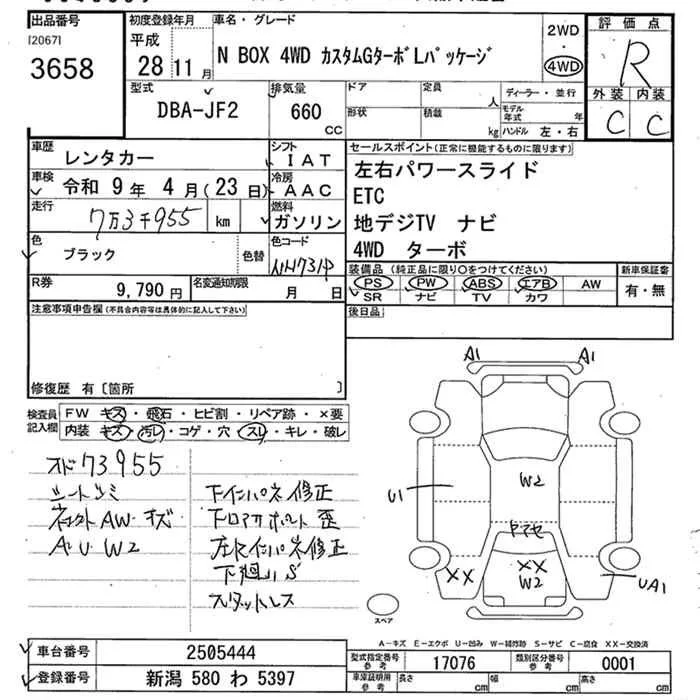 出品番号 初度登録年月 車名・グレード 評価点
[2067]
3658
平成 28年 11月
N BOX 4WD カスタムGターボLパッケージ
2WD・4WD
R
外装 内装
C C
型式 排気量 ドア 定員 人 ディーラー・並行
DBA-JF2 660 CC
形状 積載 kg モデル年式 年 ハンドル 左・右
車歴 レンタカー シフト IAT
車検 令和 9年 4月(23日) 冷房 AAC
走行 7万3千955 km 燃料 ガソリン
色 ブラック 色替 色コード NH731P
R券 9,790円 名変通知期限 月 日
セールスポイント(正常に機能するものに限ります)
左右パワースライド
ETC
地デジTV ナビ
4WD ターボ
装備品(純正品に限り○をつけてください) 新車保証書
PS PW ABS エアB AW 有・無
SR ナビ TV カワ
後日品
注意事項申告欄(不具合内容等は具体的に記入して下さい)
修復歴 有〔箇所 〕
検査員記入欄 FW キズ・飛石・ヒビ割・リペア跡・×要
内装 キズ・汚レ・コゲ・穴・スレ・キレ・破レ
オド73955
シートシミ
AW・キズ
A・U・W2
下インパネ修正
歪
インパネ修正
下廻りS
スタットレス
A1 A1
U1
W2
XX
XX
W2
UA1
スペア
A-キズ E-エクボ U-凹み W-補修跡 S-サビ C-腐食 XX-交換済
車台番号 2505444
登録番号 新潟 580 わ 5397
型式指定番号 参考 17076 類別区分番号 参考 0001
車庫証明用 参考 長さ cm 幅 cm 高さ cm